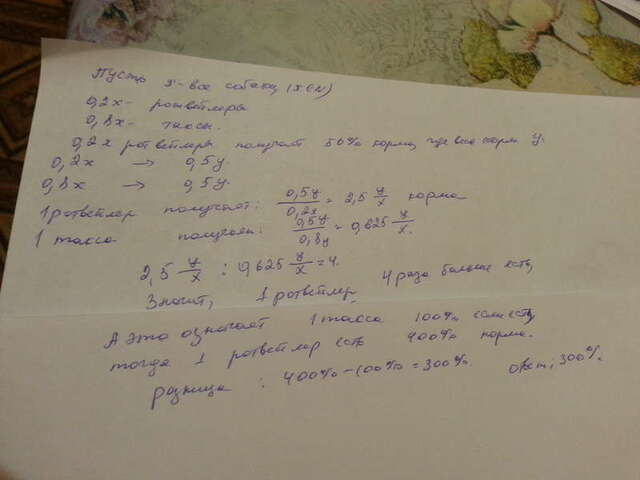 Пусть x - все собаки (x∈N)
0,2x - ротвейлеры
0,8x - таксы.
0,2x ротвейлеры получает 50% корма, где весь корм y.
0,2x → 0,5y.
0,8x → 0,5y.
1 ротвейлер получает: 0,5y/0,2x = 2,5 y/x корма
1 такса получает: 0,5y/0,8y = 0,625 y/x.
2,5 y/x : 0,625 y/x = 4.
Значит, 1 ротвейлер 4 раза больше есть,
А это означает 1 такса 100% если есть,
тогда 1 ротвейлер есть 400% корма.
разница : 400% - 100% = 300%. Ответ: 300%